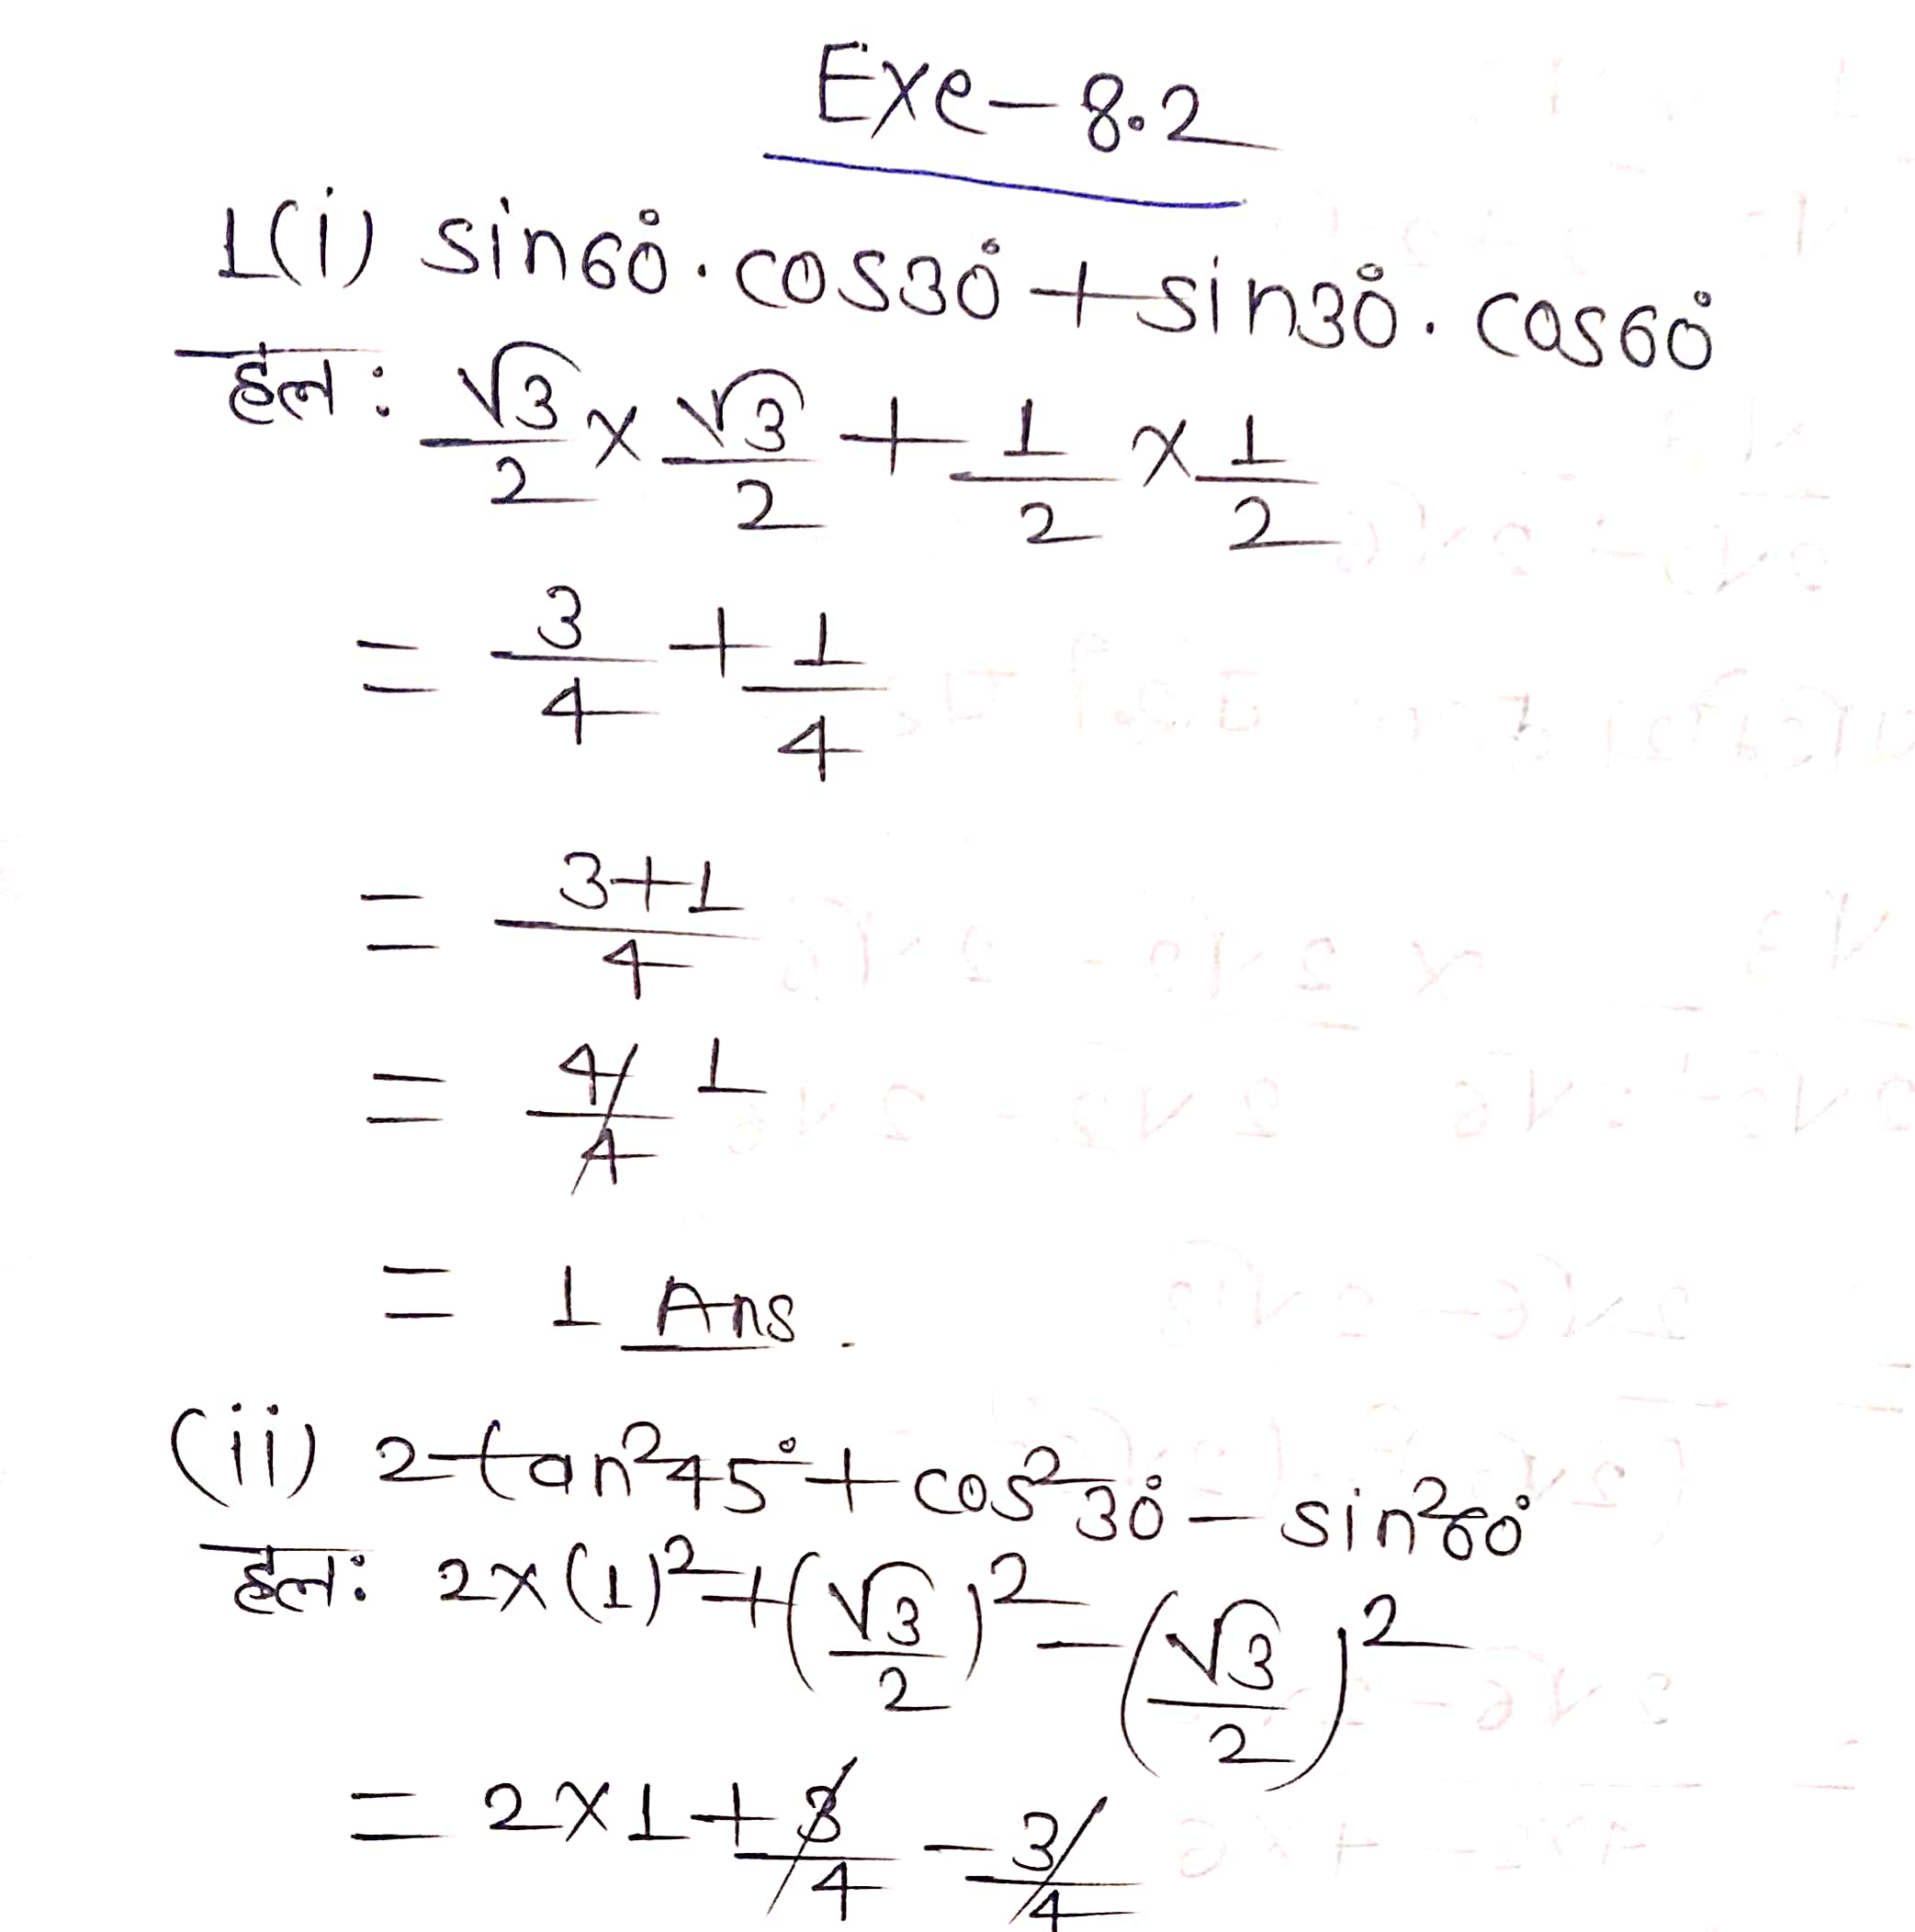 Exe-8.2
1(i) sin60°.cos30°+sin30°.cos60°
हल: √3/2 × √3/2 + 1/2 × 1/2
= 3/4 + 1/4
= 3+1/4
= 4/4 1
= 1 Ans.
(ii) 2tan²45°+cos²30°-sin²60°
हल: 2×(1)²+(√3/2)²-(√3/2)²
= 2×1+3/4-3/4